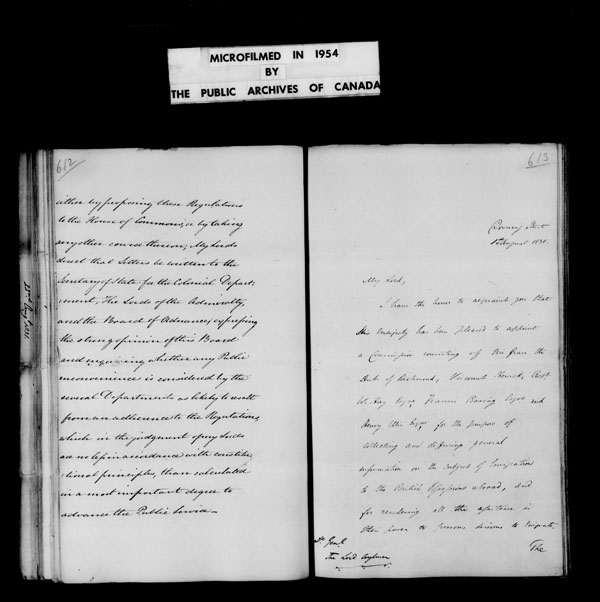 MICROFILMED IN 1954
BY
THE PUBLIC ARCHIVES OF CANADA
612
either by proposing these Regulations
to the House of Commons, or by taking
any other course thereon, My Lords
direct that Letters be written to the
Secretary of State for the Colonial Depart-
ment, The Lords of the Admiralty,
and the Board of Ordnance, expressing
the strong opinion of this Board
and enquiring whether any Public
inconvenience is considered by the
several Departments as likely to result
from an adherence to the Regulations,
which in the judgment of my Lords
are no less in accordance with constitu-
tional principles, than calculated
in a most important degree to
advance the Public Service.
613
Downing Street
August 1831.
My Lord,
I have the honor to acquaint you that
His Majesty has been pleased to appoint
a Commission consisting of His Grace the
Duke of Richmond, Viscount Howick, Robt
W. Hay Esqre, Francis Baring Esqre and
Henry Ellis Esqre for the purpose of
collecting and diffusing general
information on the subject of Emigration
to the British Possessions abroad, and
for rendering all the assistance in
their power to persons desirous to emigrate,
The
Lt Genl
The Lord Aylmer